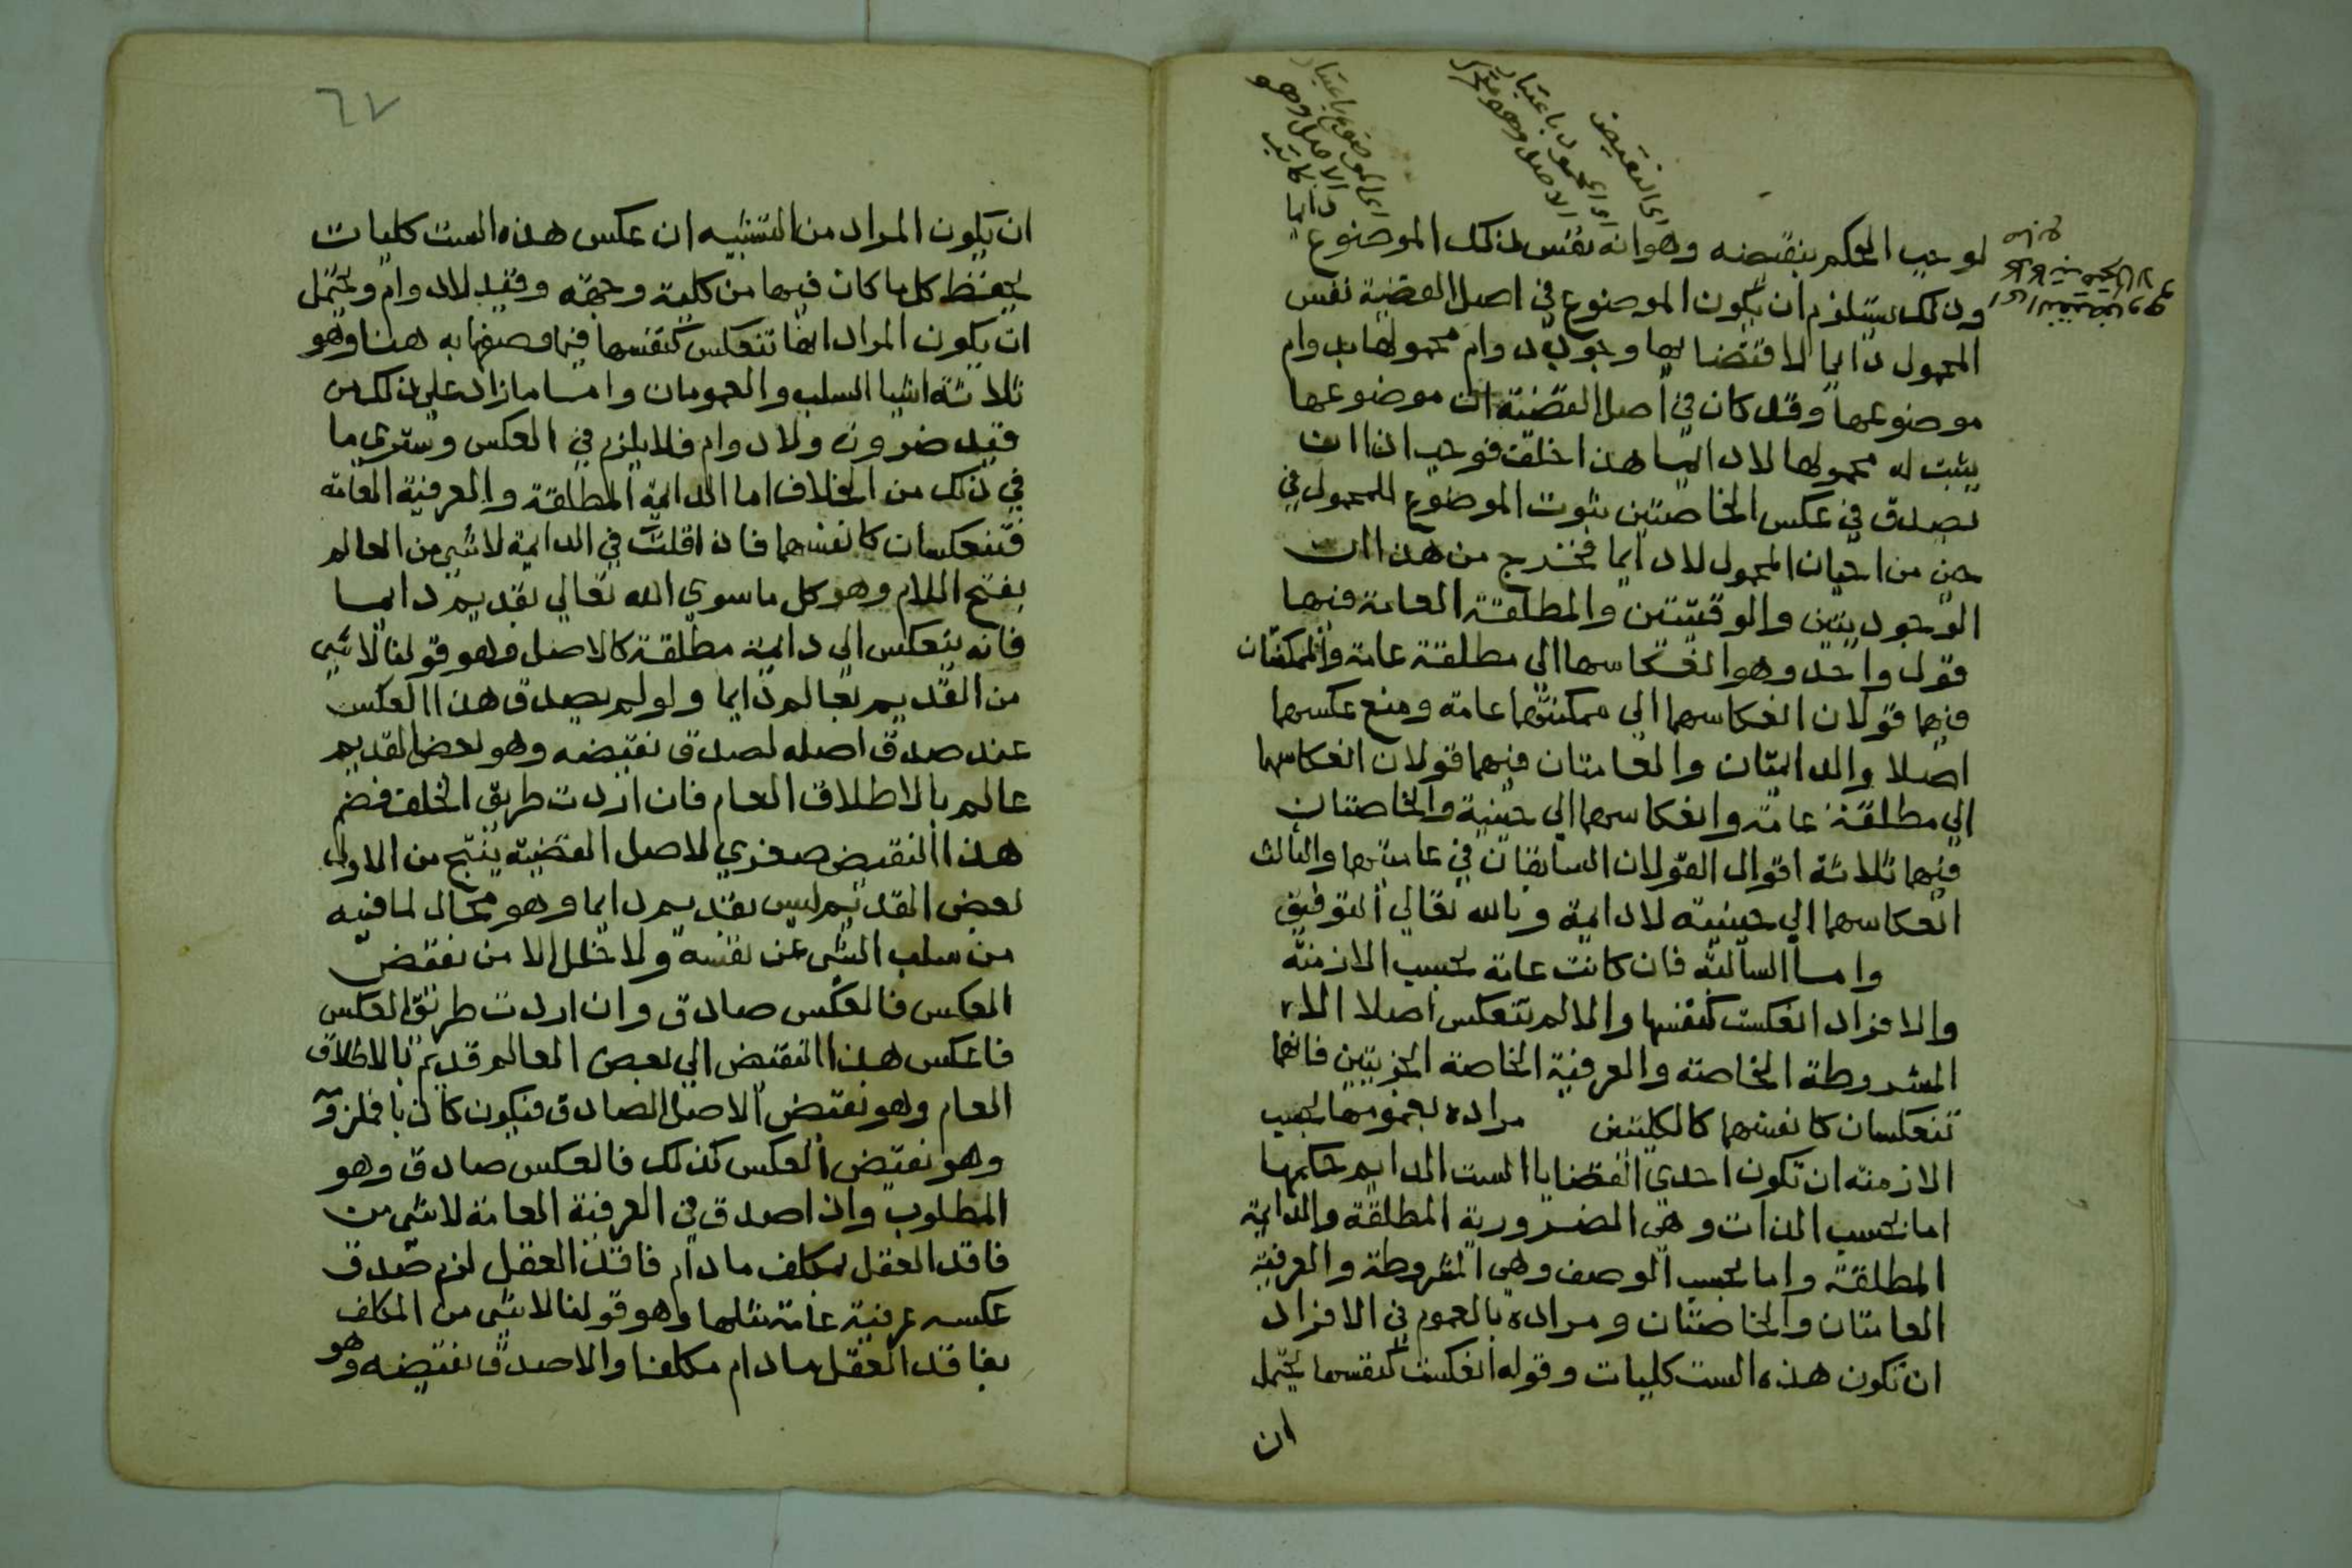 اى النقيض
اى المحمول باعتبار
الاصل وهو
اى الموضوع باعتبار
الاصل وهو
كاتب
دايما
لوجب الحكم بنقيضه وهو انه نفس ذلك الموضوع
وذلك يستلزم ان يكون الموضوع في اصل القضية نفس
المحمول دايما لاقتضايها وجوب دوام محمولها بدوام
موضوعها وقد كان في اصل القضية ان موضوعها
يثبت له محمولها لا دايما هذا خلف فوجب اذا ان
يصدق في عكس الخاصتين ثبوت الموضوع للمحمول في
حين من احيان المحمول لا دايما فخرج من هذا ان
الوجوديتين والوقتيتين والمطلقة العامة فيها
قول واحد وهو انعكاسها الي مطلقة عامة والممكنتان
فيهما قولان انعكاسهما الي ممكنة عامة ومنع عكسهما
اصلا والدايمتان والعامتان فيهما قولان انعكاسها
الي مطلقة عامة وانعكاسها الي حينية والخاصتان
فيهما ثلاثة اقوال القولان السابقان في عامتيهما والثالث
انعكاسهما الي حينية لا دايمة وبالله تعالي التوفيق
واما السالبة فان كانت عامة بحسب الازمنة
والافراد انعكست كنفسها والا لم تنعكس اصلا الا
المشروطة الخاصة والعرفية الخاصة الجزييتين فانهما
تنعكسان كانفسهما كالكليتين مراده بعمومها بحسب
الازمنة ان تكون احدي القضايا الست الدايم حكمها
اما بحسب الذات وهي الضرورية المطلقة والدايمة
المطلقة واما بحسب الوصف وهي المشروطة والعرفية
العامتان والخاصتان ومراده بالعموم في الافراد
ان تكون هذه الست كليات وقوله انعكست كنفسها يحتمل
ان
٦٧
ان يكون المراد من التشبيه ان عكس هذه الست كليات
يحفظ كل ما كان فيها من كلية وجهة وقيد لا دوام ويحتمل
ان يكون المراد انها تنعكس كنفسها فيما وصفها به هنا وهو
ثلاثة اشيا السلب والعمومان واما ما زاد علي ذلك من
قيد ضرورة ولا دوام فلا يلزم في العكس وستري ما
في ذلك من الخلاف اما الدايمة المطلقة والعرفية العامة
فتنعكسان كانفسهما فاذا قلت في الدايمة لا شي من العالم
بفتح اللام وهو كل ما سوي الله تعالي بقديم دايما
فانه ينعكس الي دايمة مطلقة كالاصل وهو قولنا لا شي
من القديم بعالم دايما ولو لم يصدق هذا العكس
عند صدق اصله لصدق نقيضه وهو بعض القديم
عالم بالاطلاق العام فان اردت طريق الخلف فضم
هذا النقيض صغري لاصل القضية ينتج من الاول
بعض القديم ليس بقديم دايما وهو محال لما فيه
من سلب الشي عن نفسه ولا خلل الا من نقيض
العكس فالعكس صادق وان اردت طريق العكس
فاعكس هذا النقيض الي بعض العالم قديم بالاطلاق
العام وهو نقيض الاصل الصادق فيكون كاذبا فملزومه
وهو نقيض العكس كذلك فالعكس صادق وهو
المطلوب واذا صدق في العرفية العامة لا شي من
فاقد العقل بمكلف ما دام فاقد العقل لزم صدق
عكسه عرفية عامة مثلها وهو قولنا لا شي من المكلف
بفاقد العقل ما دام مكلفا والا صدق نقيضه وهو